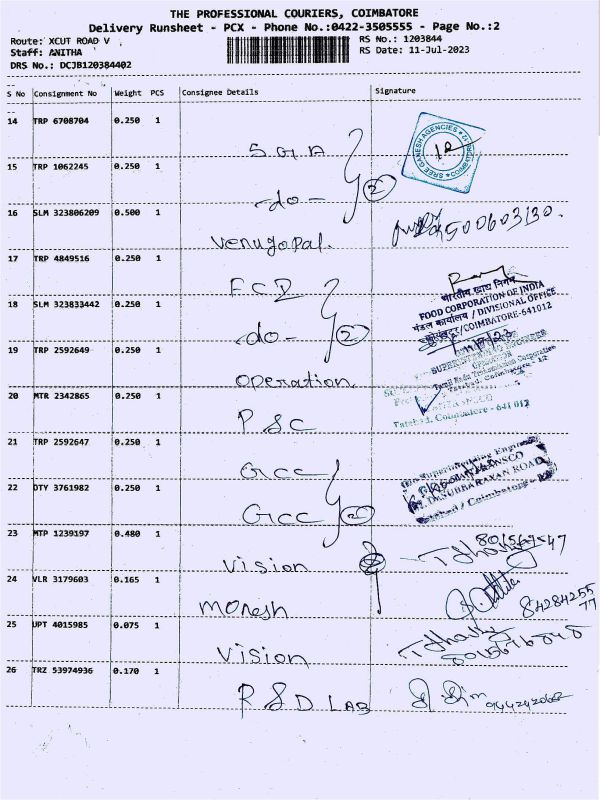 THE PROFESSIONAL COURIERS, COIMBATORE
Delivery Runsheet - PCX - Phone No.:0422-3505555 - Page No.:2
Route: XCUT ROAD V RS No.: 1203844
Staff: ANITHA RS Date: 11-Jul-2023
DRS No.: DCJB120384402
S No Consignment No Weight PCS Consignee Details Signature
14 TRP 6708704 0.250 1
SREE GANESH AGENCIES
COIMBATORE
S G A
15 TRP 1062245 0.250 1
-do- 2
16 SLM 323806209 0.500 1
Venugopal.
17 TRP 4849516 0.250 1
F C I
भारतीय खाद्य निगम
FOOD CORPORATION OF INDIA
मंडल कार्यालय / DIVISIONAL OFFICE
/COIMBATORE-641012
18 SLM 323833442 0.250 1
-do- 2
19 TRP 2592649 0.250 1
operation
20 MTR 2342865 0.250 1
Tatabad, Coimbatore - 641 012
P S C
21 TRP 2592647 0.250 1
GCC
22 DTY 3761982 0.250 1
GCC 2
23 MTP 1239197 0.480 1
Vision
24 VLR 3179603 0.165 1
moresh
84284255
77
25 UPT 4015985 0.075 1
Vision
26 TRZ 53974936 0.170 1
R S D LAB